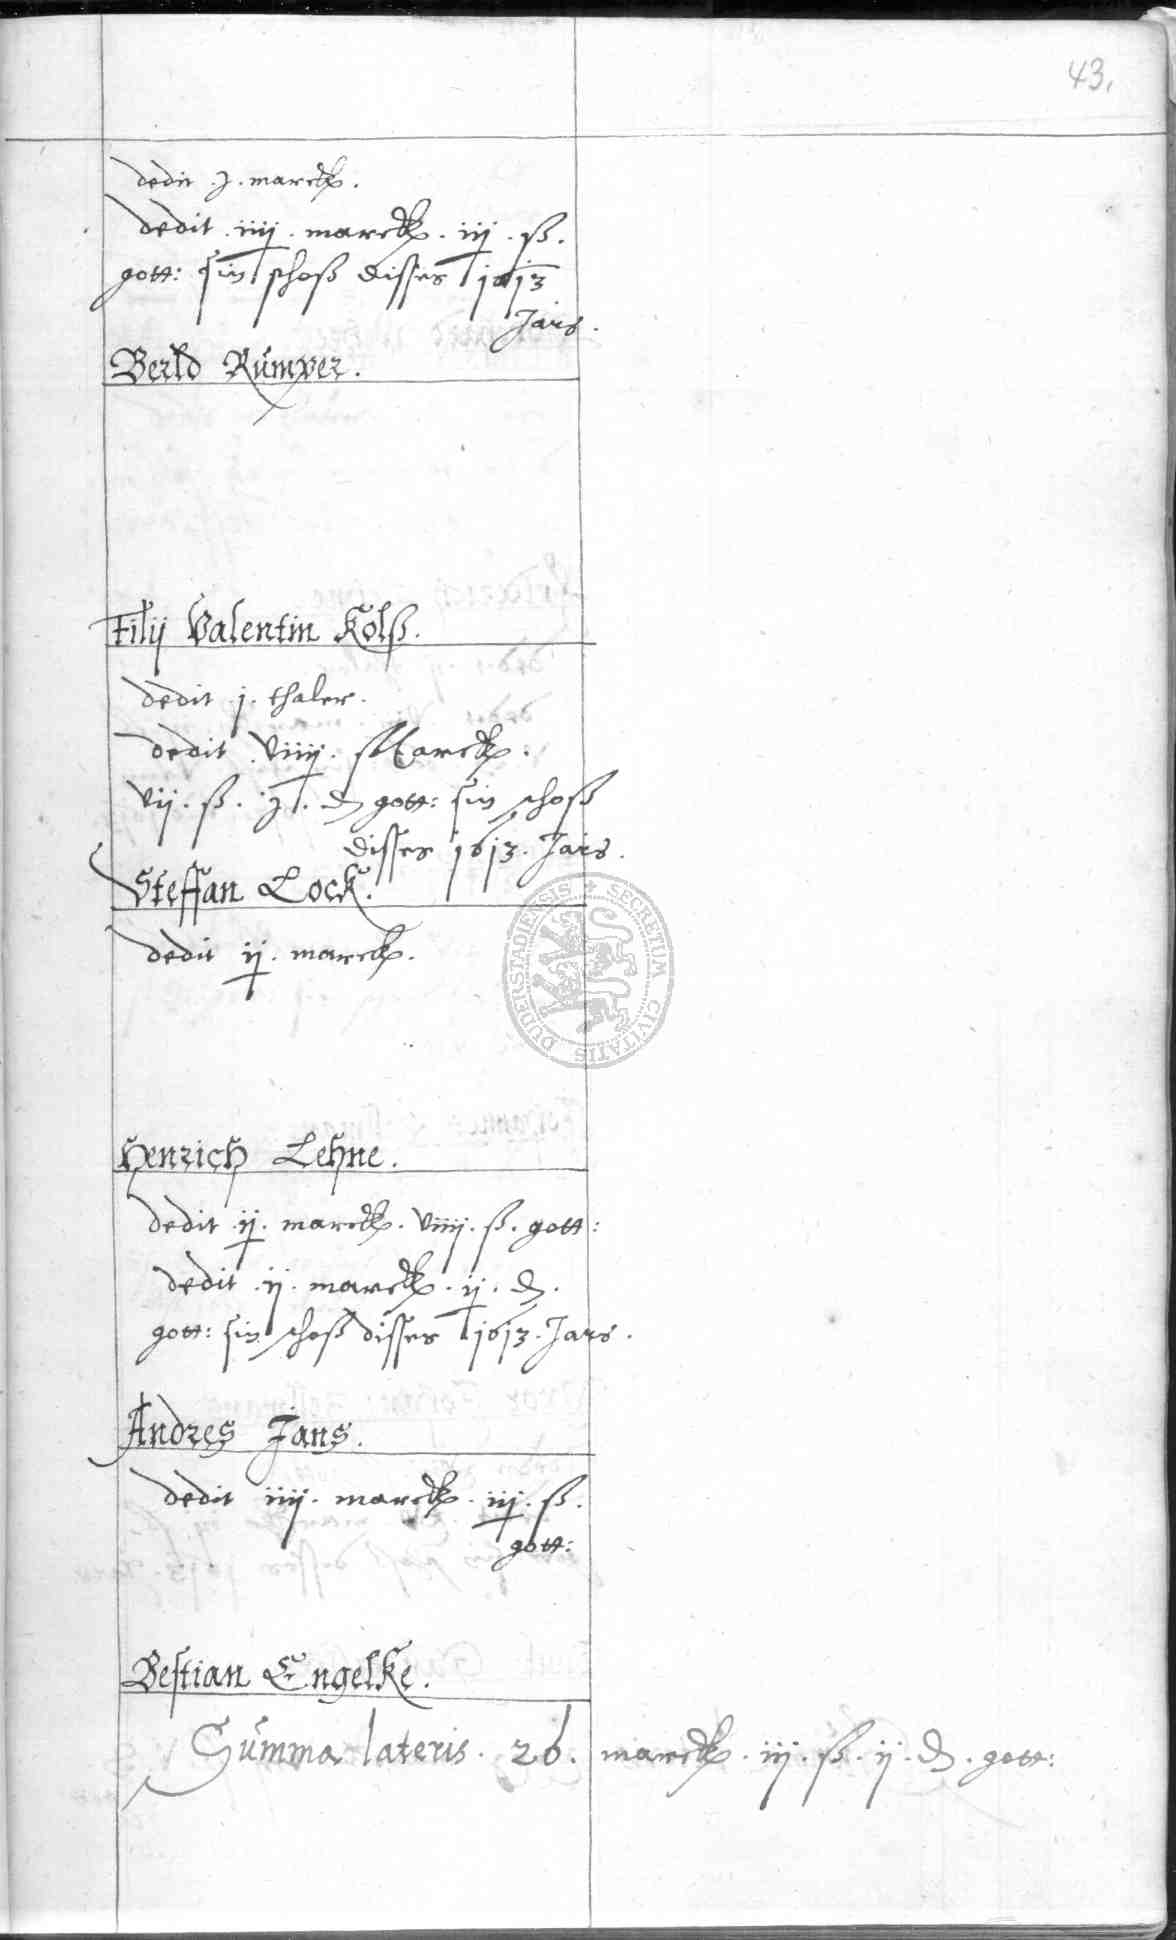 43.
dedit . j . marck .
dedit . iiij . marck . iij . ß .
gott: sin schoß disses 1613
Jars .
Berld Rümper .
Filij Valentin Kolß .
dedit . j . thaler .
dedit . viiij . Marck .
vij . ß . j . d gott: sin schoß
disses 1613 . Jars .
Steffan Lock .
dedit ij . marck .
DUDERSTADIENSIS + SECRETUM CIVITATIS
Henrich Lehne .
dedit . ij . marck . viiij . ß . gott :
dedit . ij . marck . ij . d .
gott: sin schoß disses 1613 . Jars .
Andres Jans .
dedit iiij . marck . iij . ß .
gott:
Bestian Engelke .
Summa lateris . 26 . marck . iij . ß . ij . d . gott: